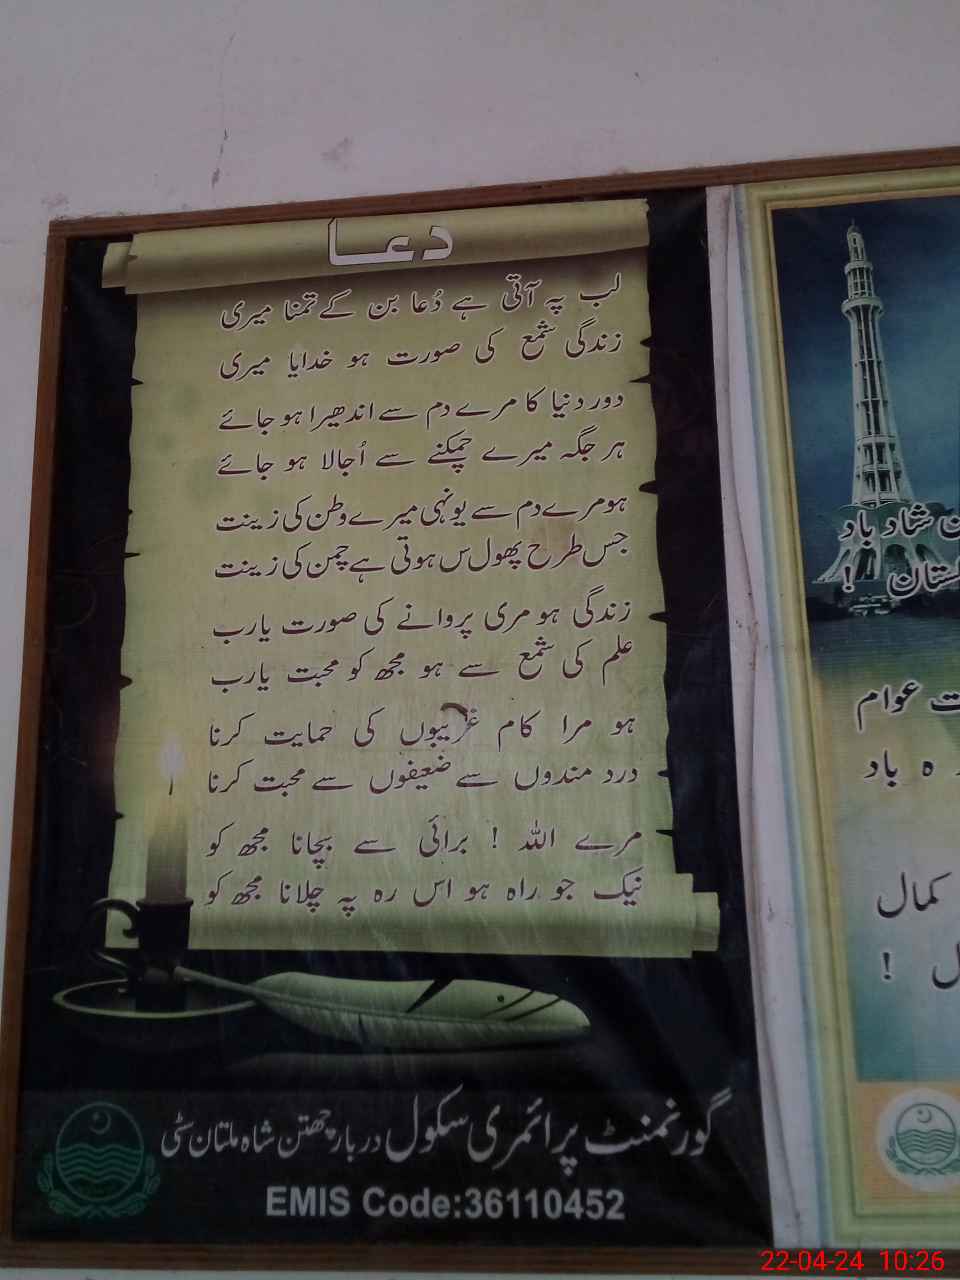 دعا
لب پہ آتی ہے دُعا بن کے تمنا میری
زندگی شمع کی صورت ہو خدایا میری
دور دنیا کا مرے دم سے اندھیرا ہو جائے
ہر جگہ میرے چمکنے سے اُجالا ہو جائے
ہو مرے دم سے یونہی میرے وطن کی زینت
جس طرح پھول س ہوتی ہے چمن کی زینت
زندگی ہو مری پروانے کی صورت یارب
علم کی شمع سے ہو مجھ کو محبت یارب
ہو مرا کام غریبوں کی حمایت کرنا
درد مندوں سے ضعیفوں سے محبت کرنا
مرے اللہ ! برائی سے بچانا مجھ کو
نیک جو راہ ہو اس رہ پہ چلانا مجھ کو
گورنمنٹ پرائمری سکول دربار چھتن شاہ ملتان سٹی
EMIS Code:36110452
ن شاد باد
!
ت عوام
ہ باد
کمال
ل !
22-04-24 10:26